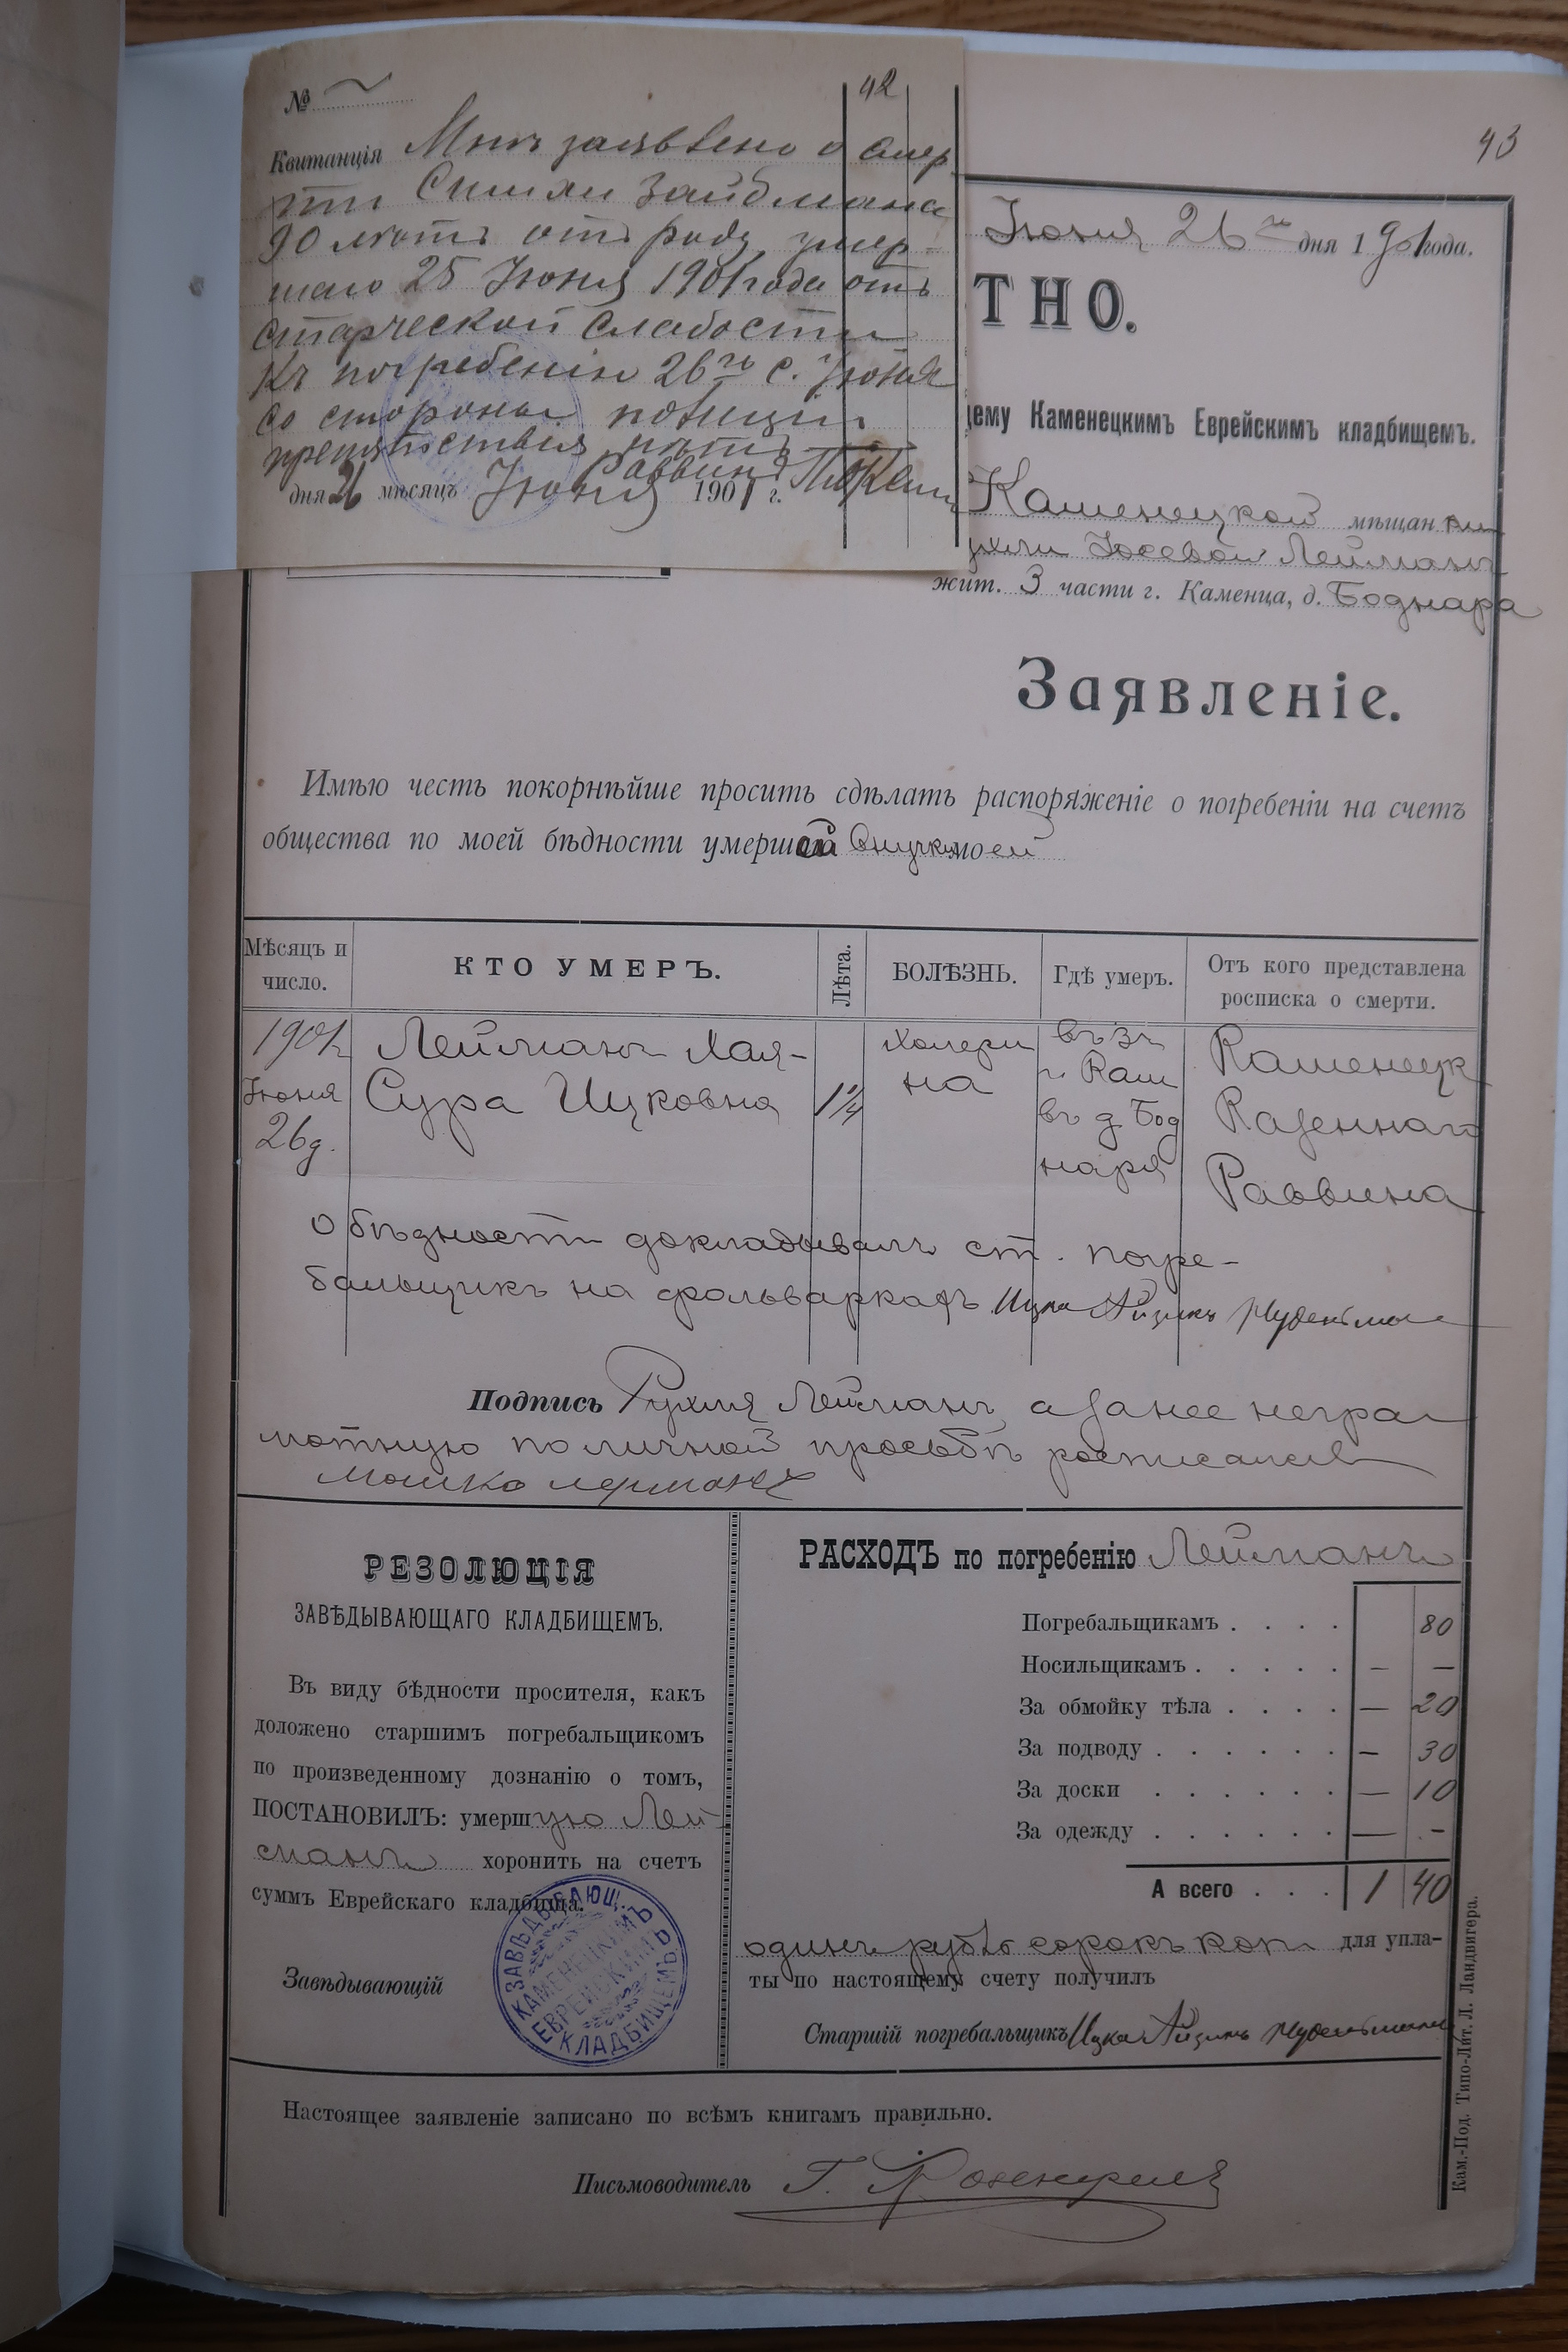 42
№
Квитанція Мнѣ заявлено о смер
ти Симхи Зайдмана
90 лѣтъ отъ роду умер-
шаго 25 Іюня 1901 года отъ
старческой слабости
Къ погребенію 26го с. Іюня
со стороны полиціи
препятствія нѣтъ
Раввинъ
дня 26 мѣсяцъ Іюня 1901 г.
43
Іюня 26го дня 1901 года.
ТНО.
ему Каменецкимъ Еврейскимъ кладбищемъ.
Каменецкой мѣщанки
Рухли Іосевой Лейманъ
жит. 3 части г. Каменца, д. Боднара
Заявленіе.
Имѣю честь покорнѣйше просить сдѣлать распоряженіе о погребеніи на счетъ
общества по моей бѣдности умершей внучки моей
Мѣсяцъ и число.
КТО УМЕРЪ.
Лѣта.
БОЛѢЗНЬ.
Гдѣ умеръ.
Отъ кого представлена росписка о смерти.
1901 Іюня 26 д.
Лейманъ Хая-
Сура Ицковна
1¼
Холери
на
въ 3 ч
г. Кам
въ д. Бод
нара
Каменецк
Казеннаго
Раввина
О бѣдности докладывалъ ст. погре-
бальщикъ на фольваркахъ Ицка Айзикъ Нудельманъ
Подпись Рухля Лейманъ, а за нее негра
мотную по личной просьбѣ росписался
Мошко Лерманъ
РЕЗОЛЮЦІЯ
ЗАВѢДЫВАЮЩАГО КЛАДБИЩЕМЪ.
Въ виду бѣдности просителя, какъ
доложено старшимъ погребальщикомъ
по произведенному дознанію о томъ,
ПОСТАНОВИЛЪ: умершую Лей-
манъ хоронить на счетъ
суммъ Еврейскаго кладбища.
Завѣдывающій
ЗАВѢДЫВАЮЩ. КАМЕНЕЦКИМЪ ЕВРЕЙСКИМЪ КЛАДБИЩЕМЪ
РАСХОДЪ по погребенію Лейманъ
Погребальщикамъ . . . . 80
Носильщикамъ . . . . . — —
За обмойку тѣла . . . . — 20
За подводу . . . . . . — 30
За доски . . . . . . — 10
За одежду . . . . . . — —
А всего . . . 1 40
одинъ рубль сорокъ коп для упла-
ты по настоящему счету получилъ
Старшій погребальщикъ Ицка Айзикъ Нудельманъ
Настоящее заявленіе записано по всѣмъ книгамъ правильно.
Письмоводитель Г. Розенфельд
Кам.-Под. Типо-Лит. Л. Ландвигера.